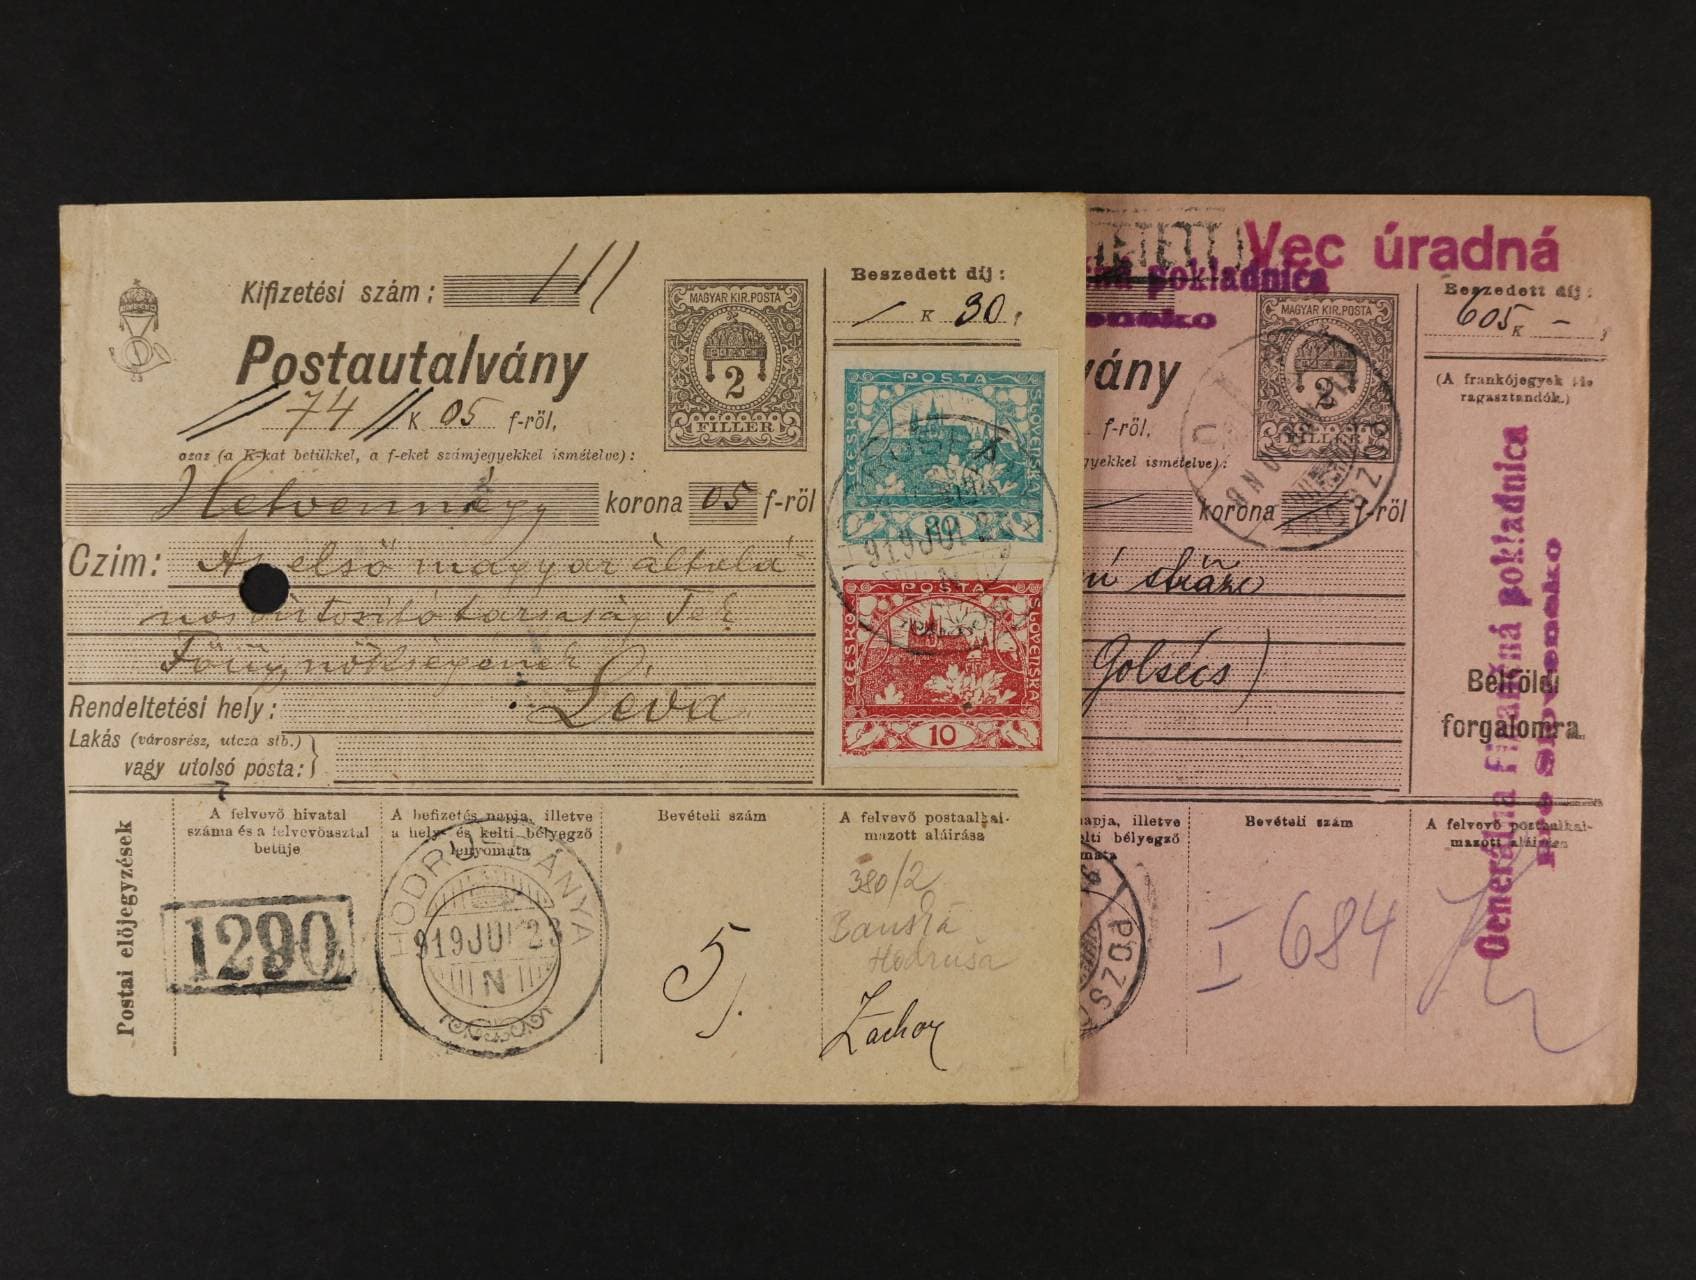 Kifizetési szám:
Postautalvány
74 K 05 f-ről,
azaz (a K-kat betükkel, a f-eket számjegyekkel ismételve):
Hetvennégy korona 05 f-ről
Czim: Az első magyar általá
nos biztositó társaság Tek
Főügynökségének
Rendeltetési hely: Léva
Lakás (városrész, utcza stb.)
vagy utolsó posta:
MAGYAR KIR. POSTA
2
FILLÉR
Beszedett díj:
K 30
POSTA
ČESKO
SLOVENSKÁ
POSTA
ČESKO
SLOVENSKÁ
10
919 JUL 25
Postai előjegyzések
A felvevő hivatal
száma és a felvevőasztal
betüje
1290
A befizetés napja, illetve
a hely- és kelti bélyegző
lenyomata
HODRUSBÁNYA
919 JUL 25
N
Bevételi szám
5
A felvevő postaalkal-
mazott aláirása
380/2
Banská
Hodruša
Vec úradná
pokladnica
vány
f-ről,
gyekkel ismételve):
korona f-ről
MAGYAR KIR. POSTA
2
FILLÉR
POZS
Beszedett díj:
605 K
(A frankójegyek ide
ragasztandók.)
stráže
Golsécs)
Belföldi
forgalomra
Generálna Finančná pokladnica
pre Slovensko
napja, illetve
elti bélyegző
mata
POZSO
Bevételi szám
I 684
A felvevő postaalkal-
mazott aláirása